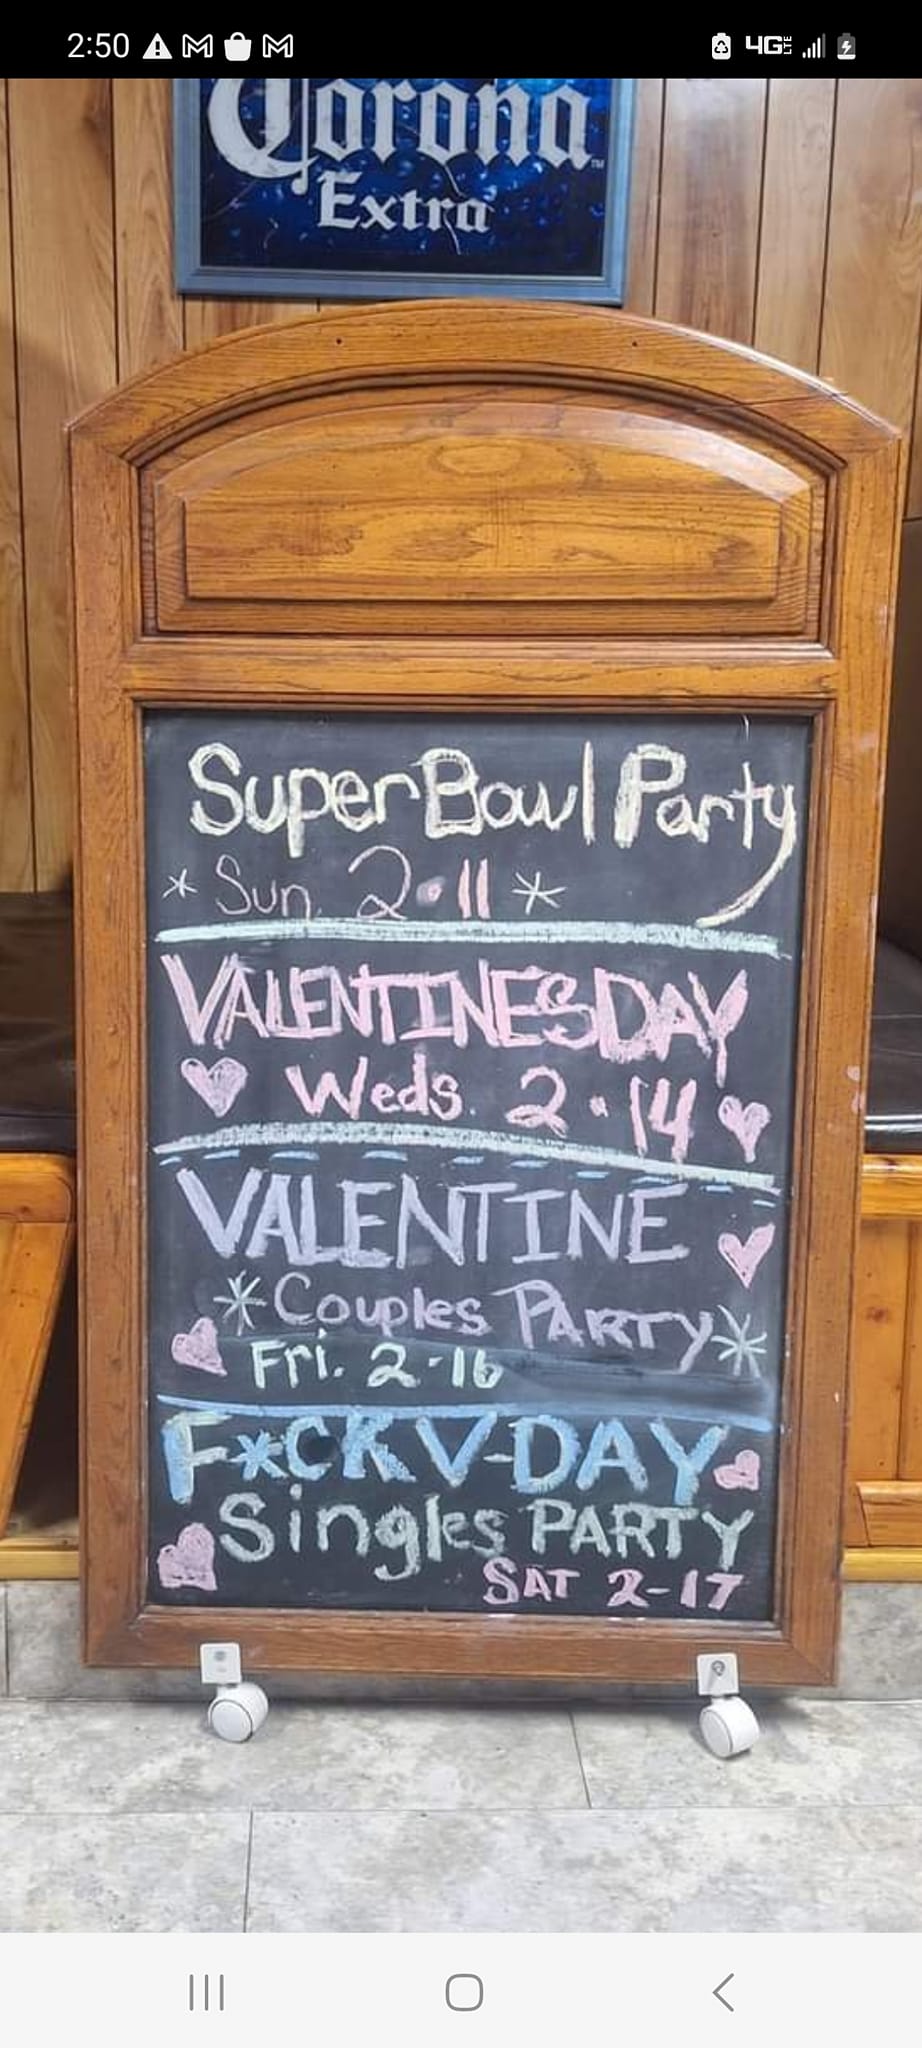 2:50
4G LTE
Corona
Extra
SuperBowl Party
* Sun. 2·11 *
VALENTINESDAY
Weds. 2·14
VALENTINE
*Couples PARTY*
Fri. 2-16
F*CK V-DAY
Singles PARTY
SAT 2-17